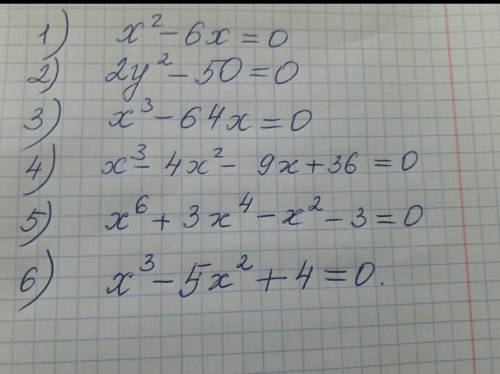 1) x² - 6x = 0
2) 2y² - 50 = 0
3) x³ - 64x = 0
4) x³ - 4x² - 9x + 36 = 0
5) x⁶ + 3x⁴ - x² - 3 = 0
6) x³ - 5x² + 4 = 0.